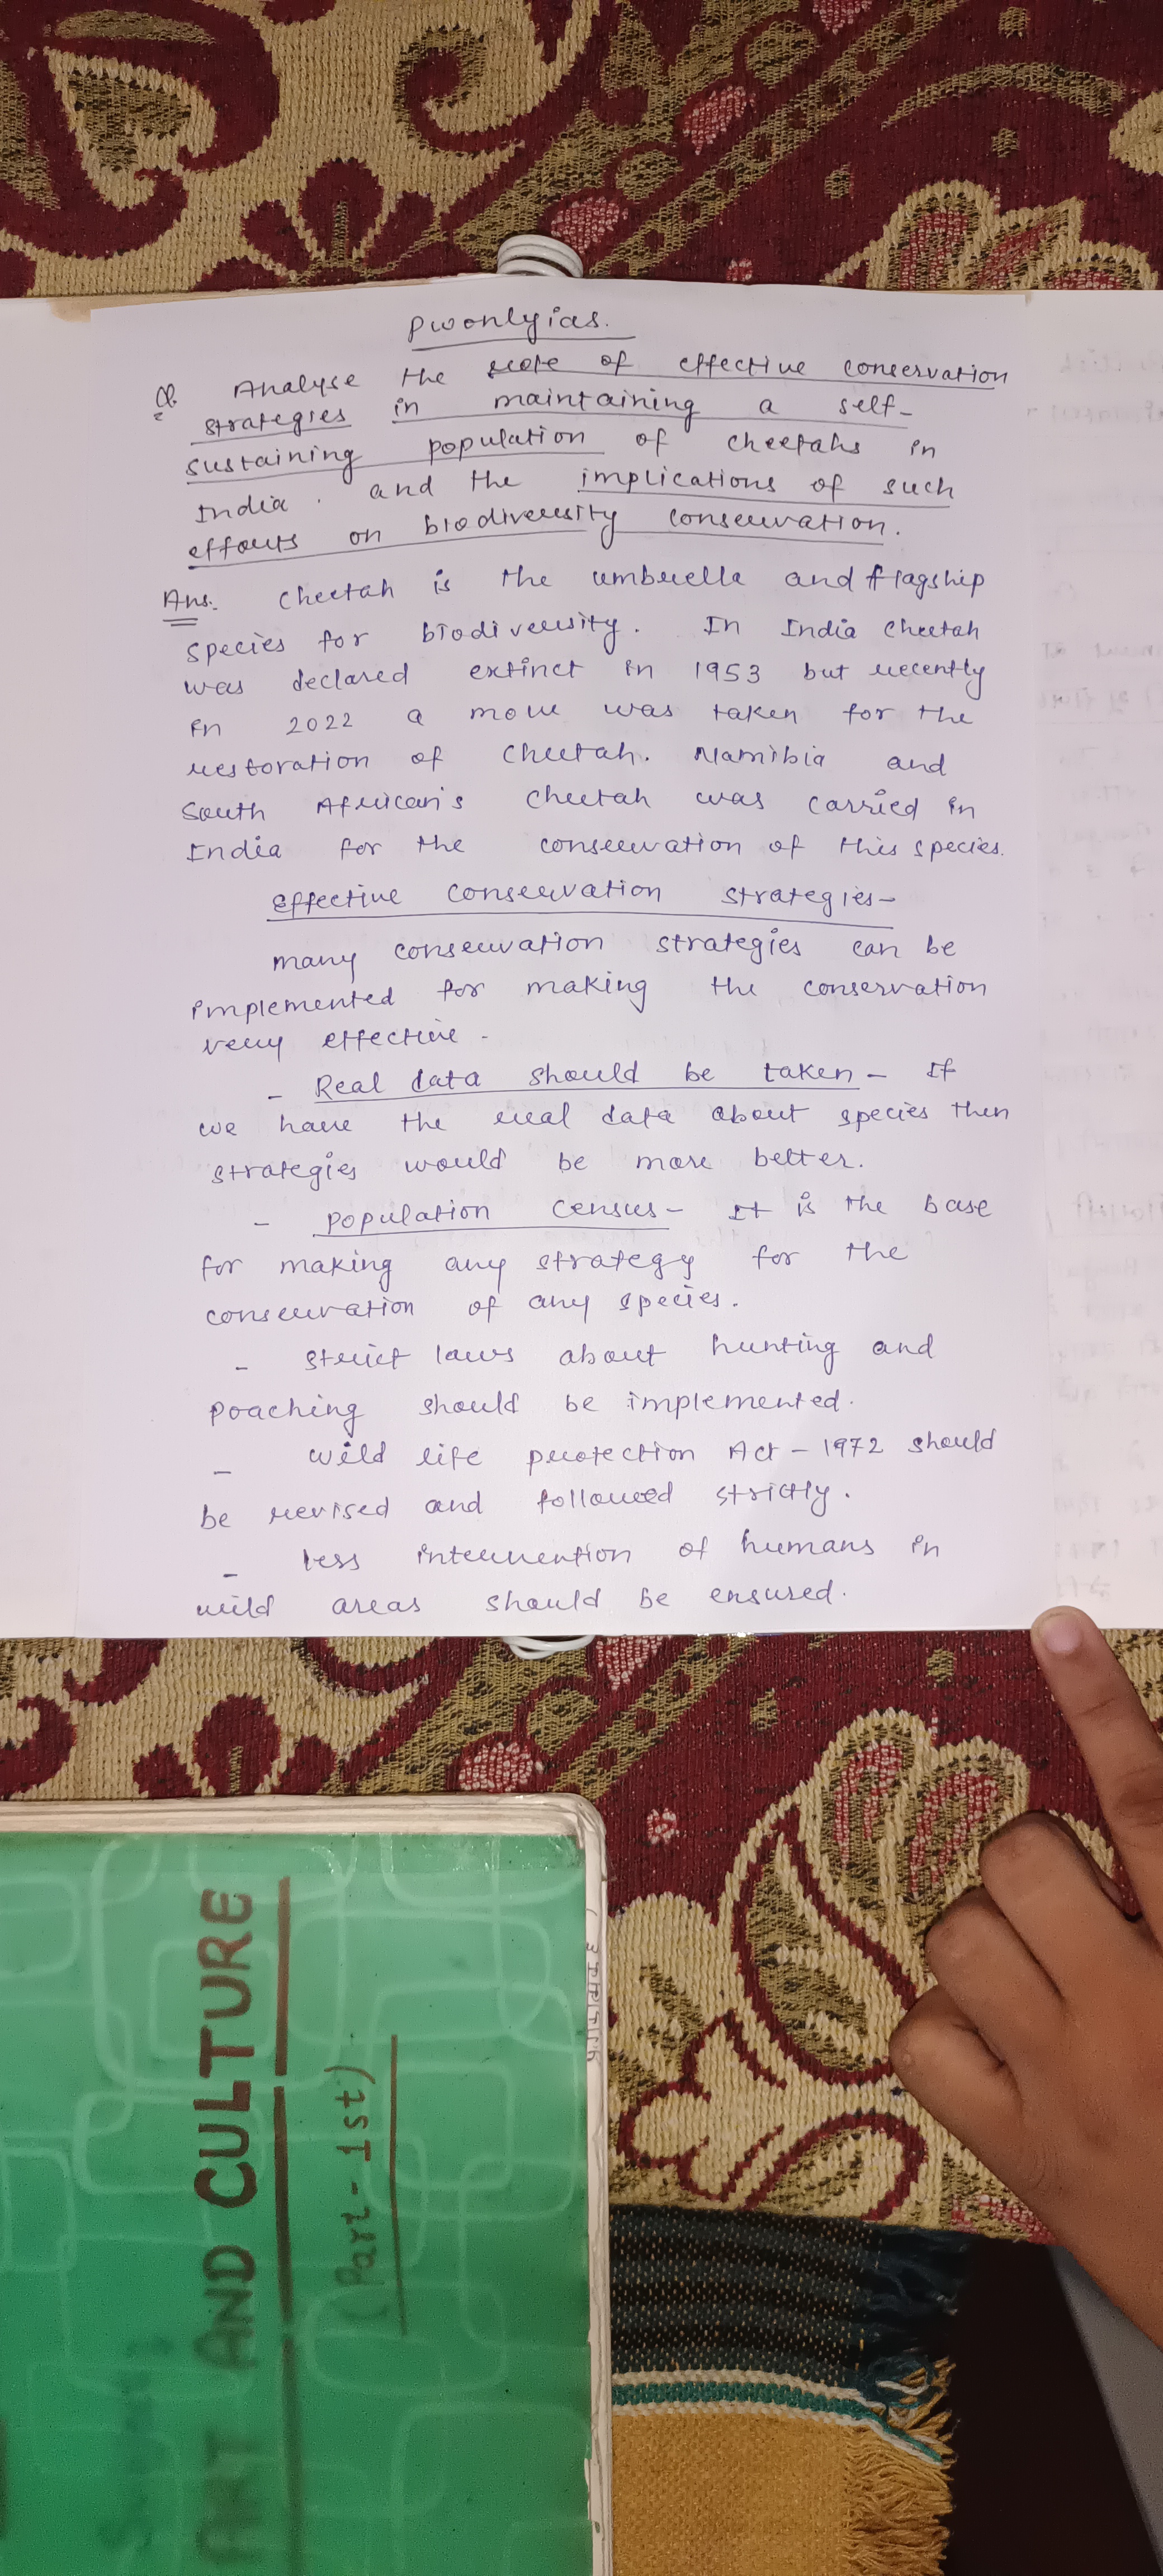 pwonlyias.
Q. Analyse the role of effective conservation
strategies in maintaining a self-
sustaining population of cheetahs in
India. and the implications of such
efforts on biodiversity conservation.
Ans. Cheetah is the umbrella and flagship
species for biodiversity. In India Cheetah
was declared extinct in 1953 but recently
in 2022 a move was taken for the
restoration of Cheetah. Namibia and
South African's Cheetah was carried in
India for the conservation of this species.
Effective conservation strategies-
many conservation strategies can be
implemented for making the conservation
very effective -
- Real data should be taken - If
we have the real data about species then
strategies would be more better.
- Population Census - It is the base
for making any strategy for the
conservation of any species.
- Strict laws about hunting and
poaching should be implemented.
- Wild life protection Act - 1972 should
be revised and followed strictly.
- less intervention of humans in
wild areas should be ensured.
ART AND CULTURE
(Part - 1st)